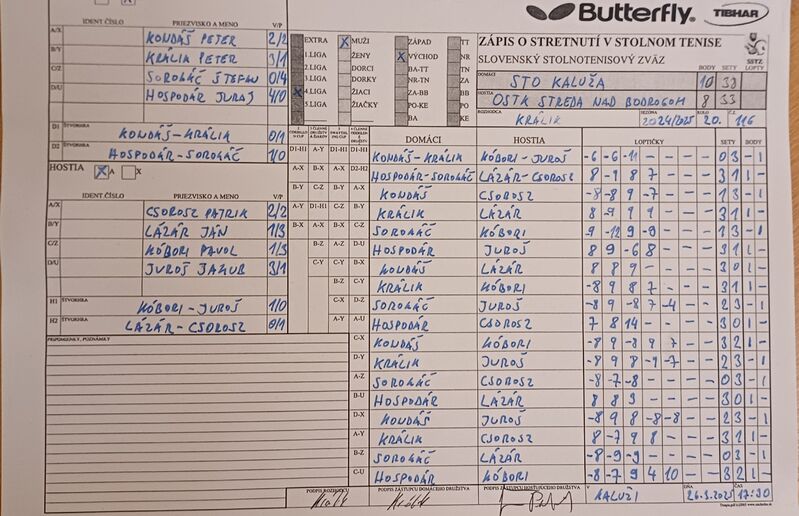 Butterfly. TIBHAR
IDENT ČÍSLO PRIEZVISKO A MENO V/P
A/X KONDÁŠ PETER 2/2
B/Y KRÁLIK PETER 3/1
C/Z SOROKÁČ ŠTEFAN 0/4
D/U HOSPODÁR JURAJ 4/0
D1 ŠTVORHRA KONDÁŠ-KRÁLIK 0/1
D2 ŠTVORHRA HOSPODÁR-SOROKÁČ 1/0
HOSTIA X A X
IDENT ČÍSLO PRIEZVISKO A MENO V/P
A/X CSOROSZ PATRIK 2/2
B/Y LÁZÁR JÁN 1/3
C/Z KÓBORI PAVOL 1/3
D/U JUROŠ JAKUB 3/1
H1 ŠTVORHRA KÓBORI-JUROŠ 1/0
H2 ŠTVORHRA LÁZÁR-CSOROSZ 0/1
PRIPOMIENKY, POZNÁMKY
EXTRA X MUŽI ZÁPAD TT
1.LIGA ŽENY X VÝCHOD NR
2.LIGA DORCI BA-TT TN
3.LIGA DORKY NR-TN ZA
X 4.LIGA ŽIACI ZA-BB BB
5.LIGA ŽIAČKY PO-KE PO
BA KE
ZÁPIS O STRETNUTÍ V STOLNOM TENISE
SLOVENSKÝ STOLNOTENISOVÝ ZVÄZ
SSTZ
BODY SETY LOPTY
DOMÁCI STO KALUŽA 10 38
HOSTIA OSTK STREDA NAD BODROGOM 8 33
ROZHODCA KRÁLIK 2024/2025 KOLO 20. Č.Z. 116
DOMÁCI HOSTIA LOPTIČKY SETY BODY
D1-H1 A-Y D1-H1 D1-H1 KONDÁŠ-KRÁLIK KÓBORI-JUROŠ -6 -6 -11 - - 0 3 - 1
A-X B-X A-X D2-H2 HOSPODÁR-SOROKÁČ LÁZÁR-CSOROSZ 8 -9 8 7 - 3 1 1 -
B-Y C-Z B-Y A-X KONDÁŠ CSOROSZ -8 -8 9 -7 - 1 3 - 1
A-Y D1-H1 C-Z B-Y KRÁLIK LÁZÁR 8 -9 9 9 - 3 1 1 -
B-X A-X C-Z SOROKÁČ KÓBORI 9 -12 -9 -9 - 1 3 - 1
B-Z A-Z D-U HOSPODÁR JUROŠ 8 9 -6 8 - 3 1 1 -
C-Y C-Y B-X KONDÁŠ LÁZÁR 8 8 9 - - 3 0 1 -
B-Z C-Y KRÁLIK KÓBORI -8 9 8 7 - 3 1 1 -
C-X D-Z SOROKÁČ JUROŠ -8 9 -8 7 -4 2 3 - 1
A-Y A-U HOSPODÁR CSOROSZ 7 8 14 - - 3 0 1 -
C-X KONDÁŠ KÓBORI 3 2 1 -
D-Y KRÁLIK JUROŠ -8 9 8 -9 -7 2 3 - 1
A-Z SOROKÁČ CSOROSZ -8 -7 -8 - - 0 3 - 1
B-U HOSPODÁR LÁZÁR 8 8 9 - - 3 0 1 -
D-X KONDÁŠ JUROŠ -8 9 8 -8 -8 2 3 - 1
A-Y KRÁLIK CSOROSZ 8 -7 9 8 - 3 1 1 -
B-Z SOROKÁČ LÁZÁR -8 -9 -9 - - 0 3 - 1
C-U HOSPODÁR KÓBORI -8 -7 9 4 10 3 2 1 -
PODPIS ROZHODCU PODPIS ZÁSTUPCU DOMÁCEHO DRUŽSTVA PODPIS ZÁSTUPCU HOSŤUJÚCEHO DRUŽSTVA V KALUŽI DŇA 26.3.2025 ČAS 17:30